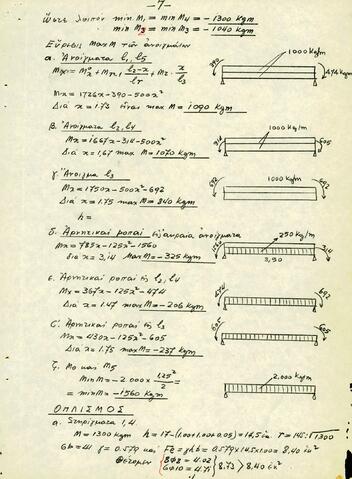 -7-
Ὥστε λοιπὸν min M₁ = min M₄ = - 1300 kgm
min M₂ = min M₃ = - 1040 kgm
Εὕρεσις max M τῶν ἀνοιγμάτων
α. Ἀνοίγματα l₁, l₅
Mx = 1726x-390-500x²
Διὰ x = 1.73 εἶναι max M = 1090 kgm
1000 kg/m
390
476 kgm
β. Ἀνοίγματα l₂, l₄
Mx = 1667x-314-500x²
Διὰ x = 1,67 max M = 1070 kgm
1000 kg/m
314
605
γ. Ἄνοιγμα l₃
Mx = 1750x-500x²-692
Διὰ x = 1.75 max M = 840 kgm
h =
1000 kg/m
692
692
δ. Ἀρνητικαὶ ροπαὶ εἰς ἀκραῖα ἀνοίγματα
Mx = 785x-125x²-1560
διὰ x = 3,14 Max M = - 325 kgm
250 kg/m
1560
314
3,50
ε. Ἀρνητικαὶ ροπαὶ εἰς l₂, l₄
Mx = 367x-125x²-474
Διὰ x = 1.47 max M = - 206 kgm
474
692
Ἀρνητικαὶ ροπαὶ εἰς l₃
Mx = 430x-125x²-605
Διὰ x = 1.75 max M = - 237 kgm
605
605
ζ. M₀ καὶ M₅
Min M = - 2.000 x 1,25²/2 =
= min M = - 1560 kgm
2.000 kg/m
ΟΠΛΙΣΜΟΣ
α. Στηρίγματα 1,4
M = 1300 kgm h = 17-(1.00+1.00+0.5) = 14,5 r = 14.5:√1300
8Φ8 = 4.02
6Φ10 = 4.71
8.73 > 8,40